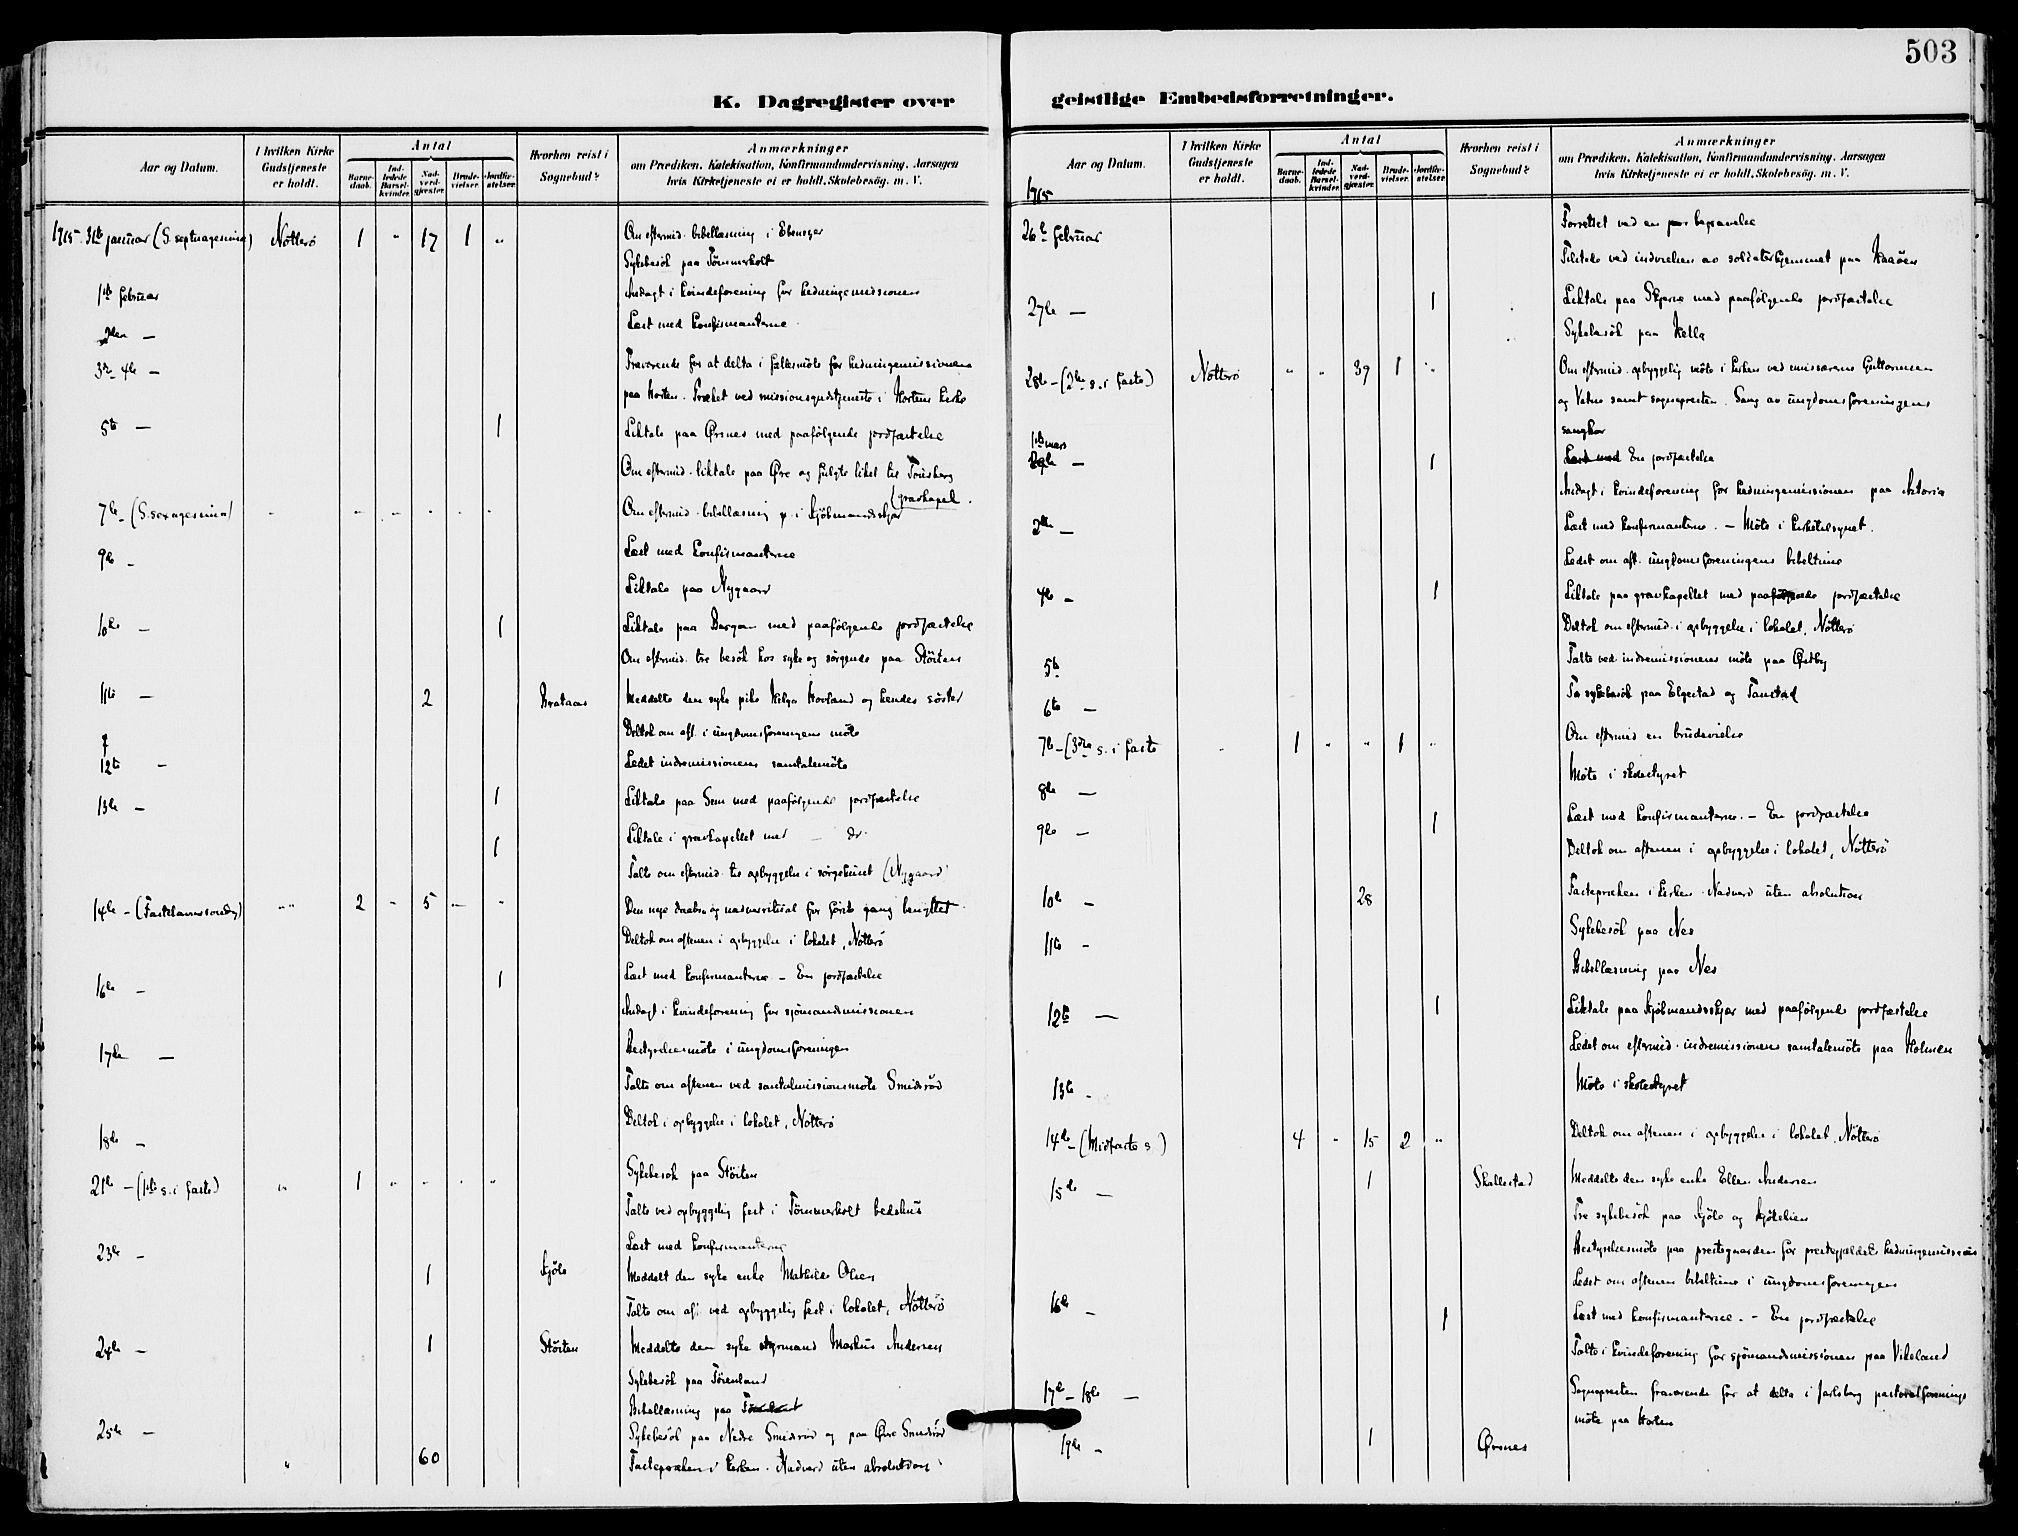 503
K. Dagregister over
geistlige Embedsforretninger.
Aar og Datum.
I hvilken Kirke Gudstjeneste er holdt.
Antal
Barnedaab.
Indledede Barselkvinder.
Nadverdgjæster.
Brudevielser.
Jordfæstelser.
Hvorhen reist i Sognebud?
Anmærkninger
om Prædiken, Katekisation, Konfirmandundervisning, Aarsagen
hvis Kirketjeneste ei er holdt, Skolebesøg, m. V.
1915 31te januar (S. septuagesima) Nøtterø 1 " 17 1 " Om eftermid. bibellæsning i Ebenezer
Sykebesøk paa Tømmerholt
1ste februar Andagt i kvindeforening for hedningemissionen
2den — Læst med konfirmanterne
3die 4de — Fraværende for at delta i fællesmøte for hedningemissionen
paa Horten. Præket ved missionsgudstjeneste i Hortens kirke
5te — 1 Liktale paa Ørsnes med paafølgende jordfæstelse
Om eftermid. liktale paa Øre og fulgte liket til Tønsberg
(gravkapel.
7de – (S. sexagesima) Om eftermid. bibellæsning i Kjøbmandskjær
9de – Læst med konfirmanterne
Liktale paa Nygaard
10de — 1 Liktale paa Bergan med paafølgende jordfæstelse
Om eftermid. tre besøk hos syke og sørgende paa Støiten
11te — 2 Brataas Meddelte den syke pike Helga Hovland og hendes søster
Deltok om aft. i ungdomsforeningens møte
12te — Ledet indremissionens samtalemøte
13de — 1 Liktale paa Sem med paafølgende jordfæstelse
1 Liktale i gravkapellet med — do.
Talte om eftermid. til opbyggelse i sørgehuset (Nygaard)
14de – (Fastelavnssøndag) " " 2 " 5 — " Den nye daabs og nadverritual for første gang benyttet
Deltok om aftenen i opbyggelse i lokalet, Nøtterø
16de — 1 Læst med konfirmanterne – En jordfæstelse
Andagt i kvindeforening for sjømandsmissionen
17de — Bestyrelsesmøte i ungdomsforeningen
Talte om aftenen ved santalmissionsmøte Smidsrød
18de — Deltok i opbyggelse i lokalet, Nøtterø
21de – (1ste s. i faste) " 1 " " " " Sykebesøk paa Støiten
Talte ved opbyggelig fest i Tømmerholt bedehus
23de — Læst med konfirmanterne
1 Kjøle Meddelt den syke enke Mathilde Olsen
Talte om aft. ved opbyggelig fest i lokalet, Nøtterø
24de — 1 Støiten Meddelte den syke styrmand Markus Andersen
Sykebesøk paa
Bibellæsning paa
25de — Sykebesøk paa Nedre Smidsrød og paa Øvre Smidsrød
" 60 Fastepræken i kirken. Nadverd uten absolution
1915
26de februar Forrettet ved en begravelse
Tiltale ved indvielsen av soldaterhjemmet paa Haaøen
27de — 1 Liktale paa Skjerve med paafølgende jordfæstelse
Sykebesøk paa Hella
28de – (2den s. i faste) Nøtterø " " 39 1 " Om eftermid. opbyggelig møte i kirken ved missærene Guttormsen
og Vatne samt sognepresten. Sang av ungdomsforeningens
sangkor
1ste mars — 1 Læst med En jordfæstelse
Andagt i kvindeforening for hedningemissionen paa Astoria
2den — Læst med konfirmanterne. – Møte i kirketilsynet.
Ledet om aft. ungdomsforeningens bibeltime
4de – 1 Liktale paa gravkapellet med paafølgende jordfæstelse
Deltok om eftermid. i opbyggelse i lokalet, Nøtterø
5te Talte ved indremissionens møte paa Østby
6te — To sykebesøk paa Elgestad og Tanstad
7de – (3die s. i faste " 1 " " 1 " Om eftermid en brudevielse
8de — Møte i skolestyret
9de — 1 Læst med konfirmanterne. – En jordfæstelse
Deltok om aftenen i opbyggelse i lokalet, Nøtterø
10de — 28 Fastepræken i kirken. Nadverd uten absolution
11te – Sykebesøk paa Nes
Bibellæsning paa Nes
12te — 1 Liktale paa Kjøbmandsskjær med paafølgende jordfæstelse
Ledet om eftermid. indremissionens samtalemøte paa Holmen
13de – Møte i skolestyret
14de – (Midfaste s) 4 " 15 2 " Deltok om aftenen i opbyggelse i lokalet, Nøtterø
15de — 1 Skallestad Meddelte den syke enke Ellen Andersen
Tre sykebesøk paa Kjøle og Kjøleliien
Bestyrelsesmøte paa prestegaarden for prestegjældets hedningemission
Ledet om aftenen bibeltime i ungdomsforeningen
16de – 1 Læst med konfirmanterne. – En jordfæstelse
Talte i kvindeforening for sjømandsmissionen paa Vikeland
17de – 18de — Sognepresten fraværende for at delta i Jarlsberg pastoralforenings
møte paa Horten
19de – 1 Ørsnes